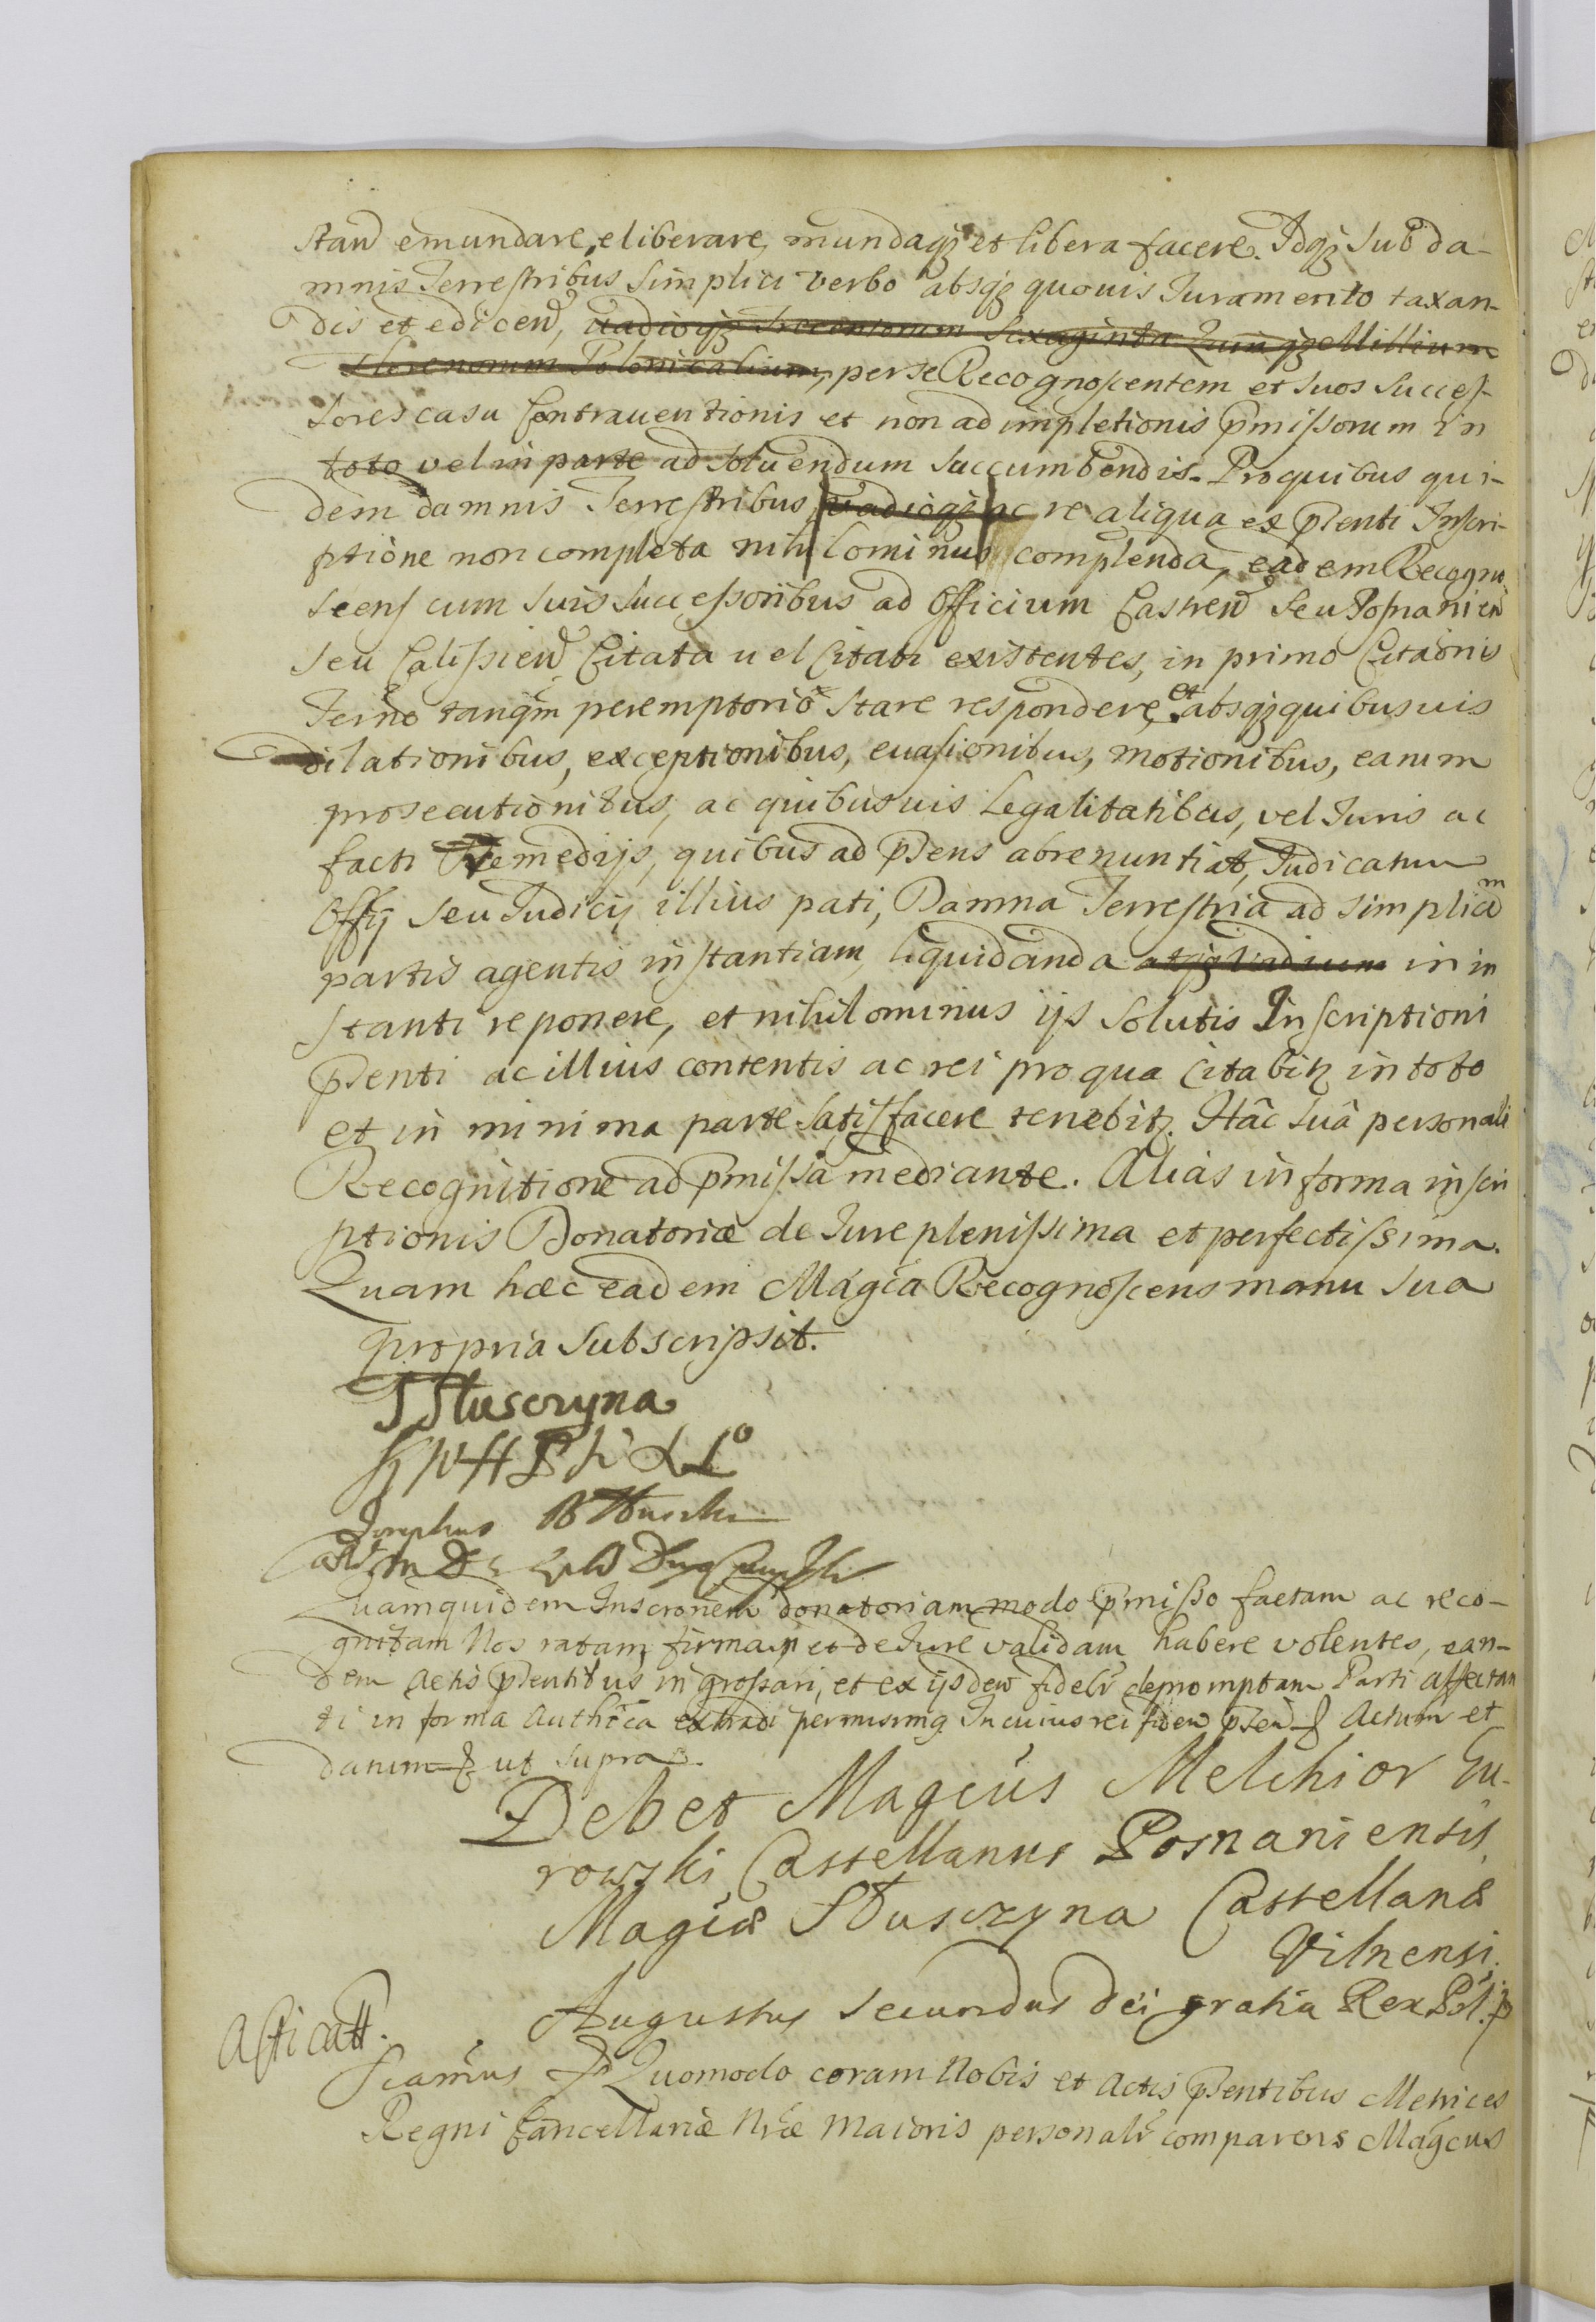 stand emundare, eliberare, mundaq; et libera facere. Idq; sub da-
mnis Terrestribus simplici verbo absq; quouis Iuramento taxan-
dis et edicend, vadioq; Trecentorum Sexaginta Quinq; Millium
florenorum Polonicalium, per se Recognoscentem et suos succes-
sores casu contrauentionis et non adimpletionis pmissorum in
toto vel in parte ad soluendum succumbendis. Pro quibus qui-
dem damnis Terrestribus, vadioq; ac re aliqua ex pnti Inscri-
ptione non completa nihilominus complenda, eadem Recogno
scens cum suis successoribus ad officium Castren seu Posnanien
seu Calissien Citata uel Citati existentes, in primo Citaonis
Termo tanqm peremptorio stare respondere, et absq; quibusuis
dilationibus, exceptionibus, euasionibus, motionibus, earum
prosecutionibus, ac quibusuis Legalitatibus, vel Iuris ac
facti Remedijs, quibus ad pns abrenuntiat, Iudicatum
Offij seu Iudicij illius pati, Damna Terrestria ad simplicem
partis agentis instantiam, liquidanda atq; vadium in in
stanti reponere, et nihilominus ijs solutis Inscriptioni
pnti ac illius contentis ac rei pro qua citabitr in toto
et in minima parte satisfacere tenebitr. Hâc suâ personali
Recognitione ad pmissa mediante. Alias in forma inscri
ptionis Donatoriæ de Iure plenissima et perfectissima.
Quam hæc eadem Magca Recognoscens manu sua
propria subscripsit.
Słusczyna
Quamquidem Inscronem donatoriam modo pmisso factam ac reco-
gnitam Nos ratam, firmam et de Iure validam habere volentes, ean-
dem Actis pntibus ingrossari, et ex ijsdem fideli depromptam Parti affectan
ti in forma Authca extradi permisimg. In cuius rei fidem pnd &. Actum et
datum & ut supra.
Debet Magcus Melchior Gu-
rowski Castellanus Posnaniensis
Magcæ Słusczyna Castellanæ
Vilnensi.
Augustus secundus Dei gratia Rex Pol. &
Scamus & Quomodo coram Nobis et Actis pntibus Metrices
Regni Cancellariæ Nræ Maioris personalr comparens Magcus